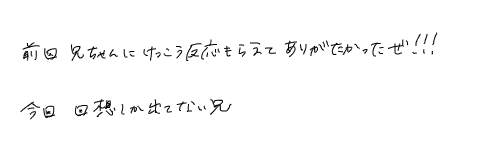 前回 兄ちゃんに けっこう反応もらえて ありがたかったぜ!!!
今回 回想しか出てない兄